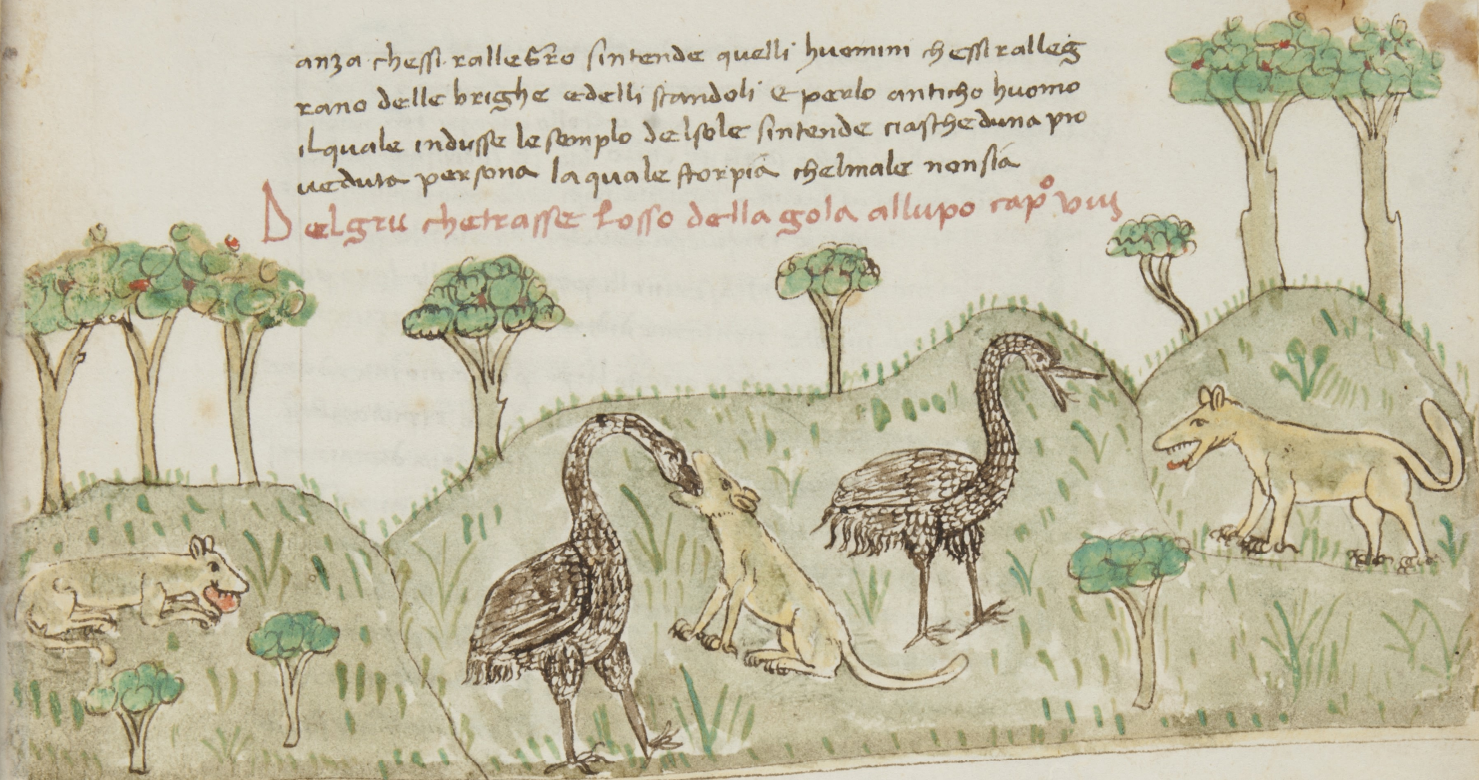 anza chessi rallegro sintende quelli huomini chessi ralleg
rano delle brighe edelli scandoli e perlo anticho huomo
ilquale indusse lesemplo delsole sintende ciascheduna pro
veduta persona laquale storpia chelmale nonsia
Delgru chetrasse losso della gola allupo capº viii